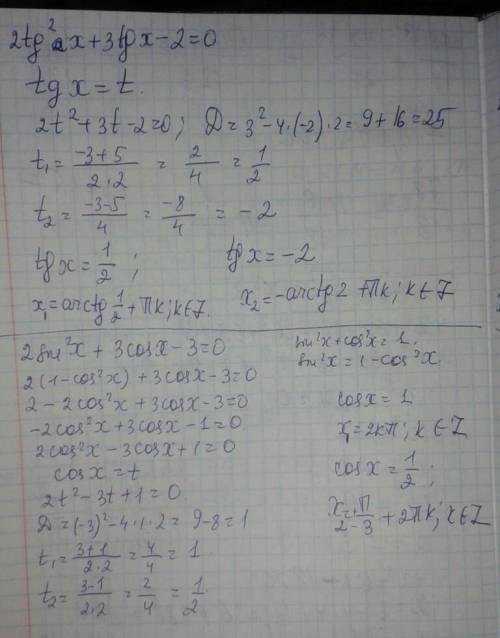 2tg²x+3tgx-2=0
tgx=t.
2t²+3t-2=0; D=3²-4·(-2)·2=9+16=25
t₁=(-3+5)/(2·2)=2/4=1/2
t₂=(-3-5)/4=-8/4=-2
tgx=1/2; tgx=-2
x₁=arctg 1/2+πk; k∈Z. x₂=-arctg2+πk; k∈Z
2sin²x+3cosx-3=0
2(1-cos²x)+3cosx-3=0
2-2cos²x+3cosx-3=0
-2cos²x+3cosx-1=0
2cos²x-3cosx+1=0
cosx=t
2t²-3t+1=0
D=(-3)²-4·1·2=9-8=1
t₁=(3+1)/(2·2)=4/4=1.
t₂=(3-1)/(2·2)=2/4=1/2
sin²x+cos²x=1.
sin²x=1-cos²x
cosx=1
x₁=2kπ; k∈Z
cosx=1/2;
x₂=±π/3+2πk; k∈Z